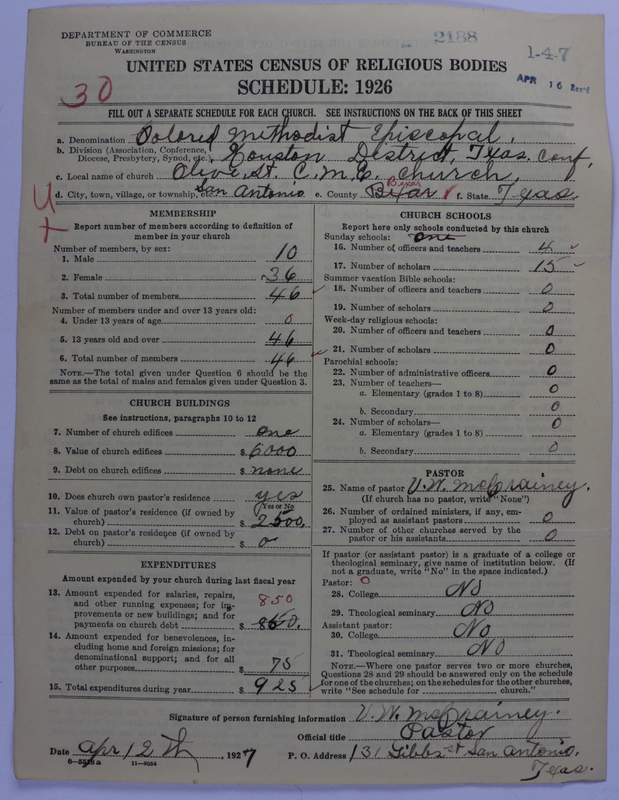 DEPARTMENT OF COMMERCE
BUREAU OF THE CENSUS
WASHINGTON
2188
1-4-7
APR 16
UNITED STATES CENSUS OF RELIGIOUS BODIES
SCHEDULE: 1926
30
FILL OUT A SEPARATE SCHEDULE FOR EACH CHURCH. SEE INSTRUCTIONS ON THE BACK OF THIS SHEET
a. Denomination Colored Methodist Episcopal,
b. Division (Association, Conference, Diocese, Presbytery, Synod, etc.) Houston District, Texas. Conf,
c. Local name of church Olive, St. C. M. E. church,
d. City, town, village, or township, etc. San Antonio e. County Bexar Bexar f. State Texas
MEMBERSHIP
Report number of members according to definition of
member in your church
Number of members, by sex:
1. Male 10
2. Female 36
3. Total number of members 46
Number of members under and over 13 years old:
4. Under 13 years of age 0
5. 13 years old and over 46
6. Total number of members 46
NOTE.—The total given under Question 6 should be the
same as the total of males and females given under Question 3.
CHURCH BUILDINGS
See instructions, paragraphs 10 to 12
7. Number of church edifices one
8. Value of church edifices $ 6000
9. Debt on church edifices $ none
10. Does church own pastor's residence yes
(Yes or No)
11. Value of pastor's residence (if owned by
church) $ 2500,
12. Debt on pastor's residence (if owned by
church) $ 0
EXPENDITURES
Amount expended by your church during last fiscal year
13. Amount expended for salaries, repairs,
and other running expenses; for im-
provements or new buildings; and for
payments on church debt $ 850
14. Amount expended for benevolences, in-
cluding home and foreign missions; for
denominational support; and for all
other purposes $ 75
15. Total expenditures during year $ 925
CHURCH SCHOOLS
Report here only schools conducted by this church
Sunday schools: one
16. Number of officers and teachers 4
17. Number of scholars 15
Summer vacation Bible schools:
18. Number of officers and teachers 0
19. Number of scholars 0
Week-day religious schools:
20. Number of officers and teachers 0
21. Number of scholars 0
Parochial schools:
22. Number of administrative officers 0
23. Number of teachers—
a. Elementary (grades 1 to 8) 0
b. Secondary 0
24. Number of scholars— 0
a. Elementary (grades 1 to 8) 0
b. Secondary 0
PASTOR
25. Name of pastor V. W. McGrainey.
(If church has no pastor, write "None")
26. Number of ordained ministers, if any, em-
ployed as assistant pastors 0
27. Number of other churches served by the
pastor or his assistants 0
If pastor (or assistant pastor) is a graduate of a college or
theological seminary, give name of institution below. (If
not a graduate, write "No" in the space indicated.)
Pastor: 0
28. College No
29. Theological seminary No
Assistant pastor:
30. College No
31. Theological seminary No
NOTE.—Where one pastor serves two or more churches,
Questions 28 and 29 should be answered only on the schedule
for one of the churches; on the schedules for the other churches,
write "See schedule for church."
Signature of person furnishing information V. W. McGrainey.
Official title Pastor
Date Apr 12th, 1927 P. O. Address 131 Gibbs st San Antonio,
Texas.
6—5518a 11—9054